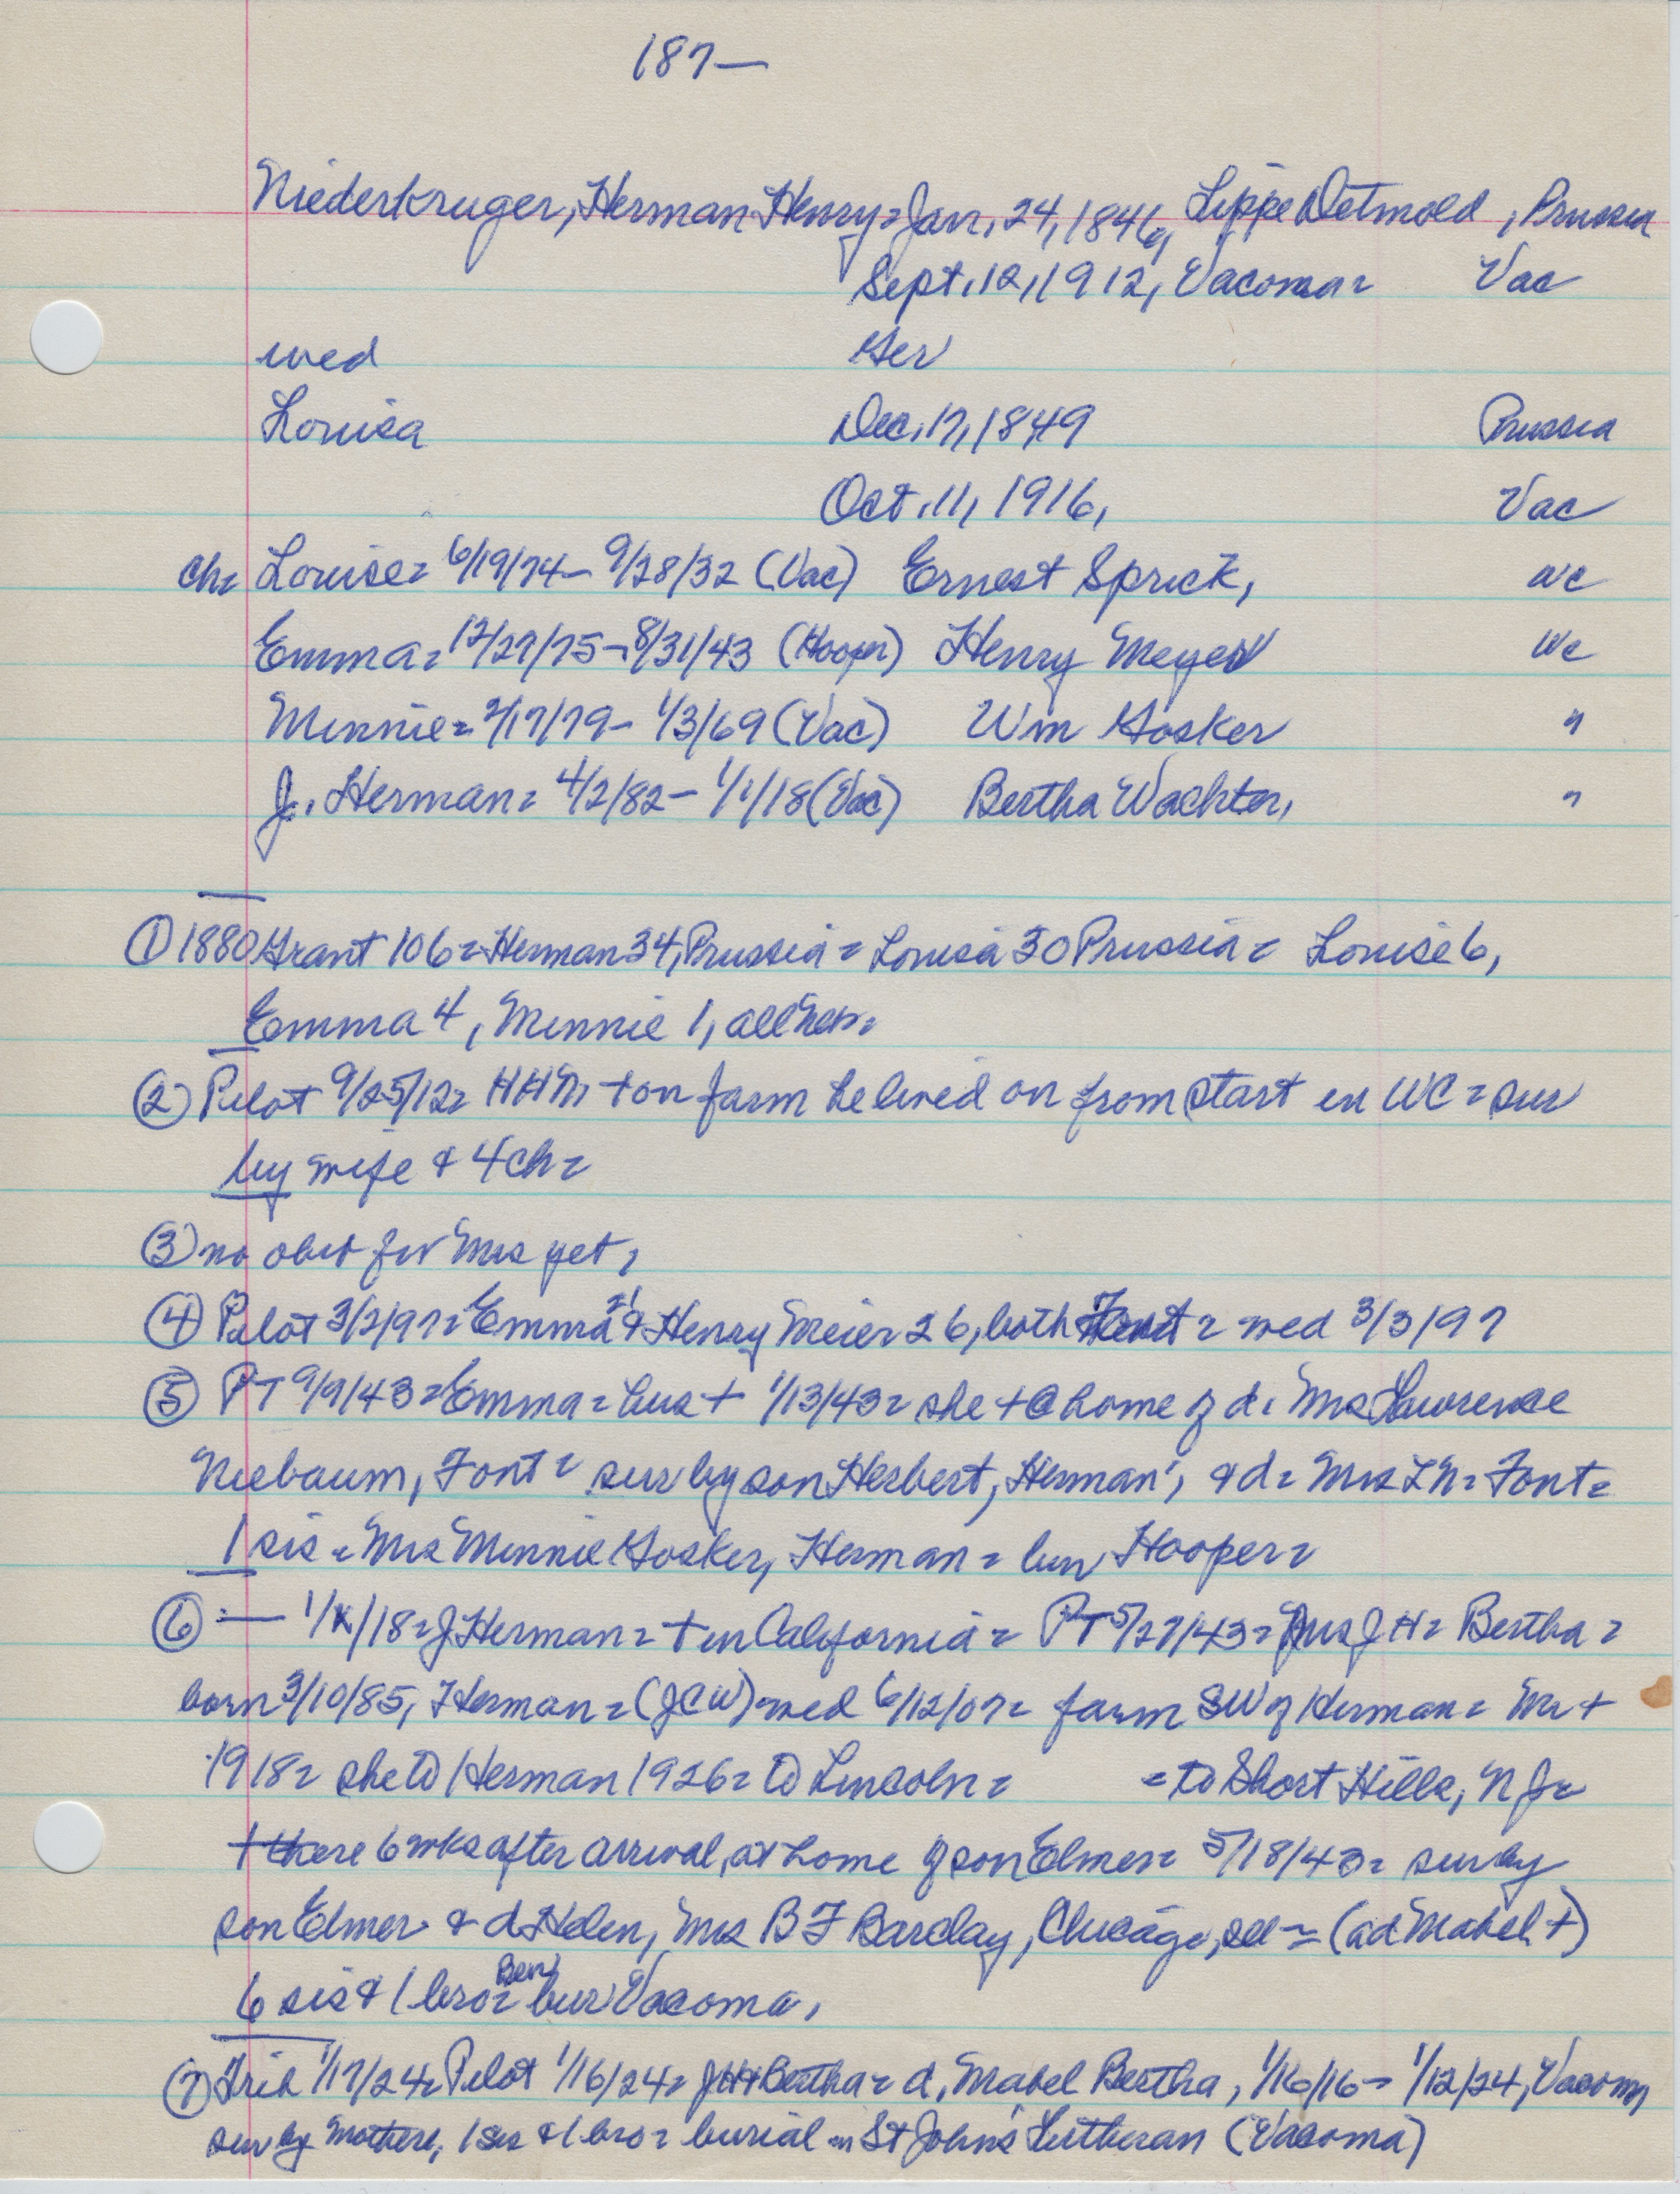 187—
Niederkruger, Herman Henry = Jan. 24, 1846, Lippe Detmold, Prussia
Sept. 12, 1912, Vacoma = Vac
wed Ger
Louisa Dec. 17, 1849 Prussia
Oct. 11, 1916, Vac
ch = Louise = 6/19/74 - 9/28/32 (Vac) Ernest Sprick, WC
Emma = 12/27/75 - 8/31/43 (Hooper) Henry Meyer WC
Minnie = 2/17/79 - 1/3/69 (Vac) Wm Gosker "
J. Herman = 4/2/82 - 1/1/18 (Vac) Bertha Wachter, "
① 1880 Grant 106 = Herman 34, Prussia = Louisa 30 Prussia = Louise 6,
Emma 4, Minnie 1, all Neb =
② Pilot 9/25/12 = HHN + on farm he lived on from start in WC = sur
by wife & 4 ch =
③ no obit for Mrs yet,
④ Pilot 3/2/97 = Emma 21 & Henry Meier 26, both Font = wed 3/3/97
⑤ PT 9/9/43 = Emma = hus + 1/13/43 = she + @ home of d. Mrs Lawrence
Niebaum, Font = sur by son Herbert, Herman, & d = Mrs LN = Font =
1 sis = Mrs Minnie Gosker, Herman = bur Hooper =
⑥ — 1/ /18 = J Herman = + in California = PT 5/27/43 = Mrs J H = Bertha =
born 3/10/85, Herman = (JCW) wed 6/12/07 = farm SW of Herman = Mr +
1918 = she to Herman 1926 = to Lincoln = = to Short Hills, NJ =
+ there 6 wks after arrival, at home of son Elmer = 5/18/43 = sur by
son Elmer & d Helen, Mrs B F Barclay, Chicago, (a d Mabel +)
6 sis & 1 bro = Ben bur Vacoma,
⑦ Trib 1/17/24 = Pilot 1/16/24 = JH & Bertha = d, Mabel Bertha, 1/16/16 - 1/12/24, Vacoma,
sur by mother, 1 sis & 1 bro = burial in St John's Lutheran (Vacoma)